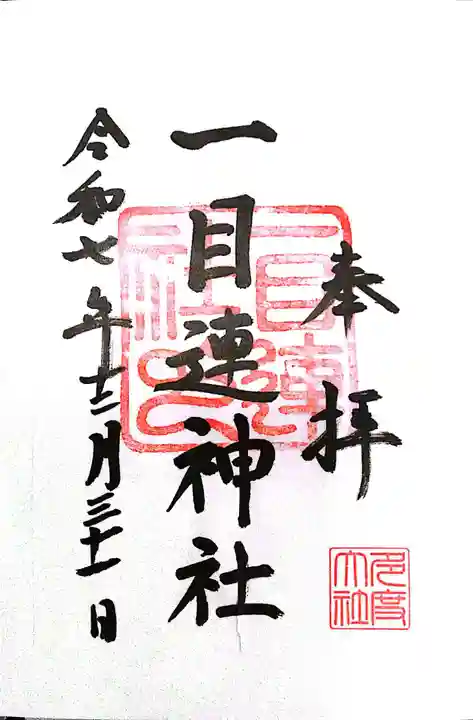 奉拝
一目連神社
令和七年十二月三十一日
多度大社